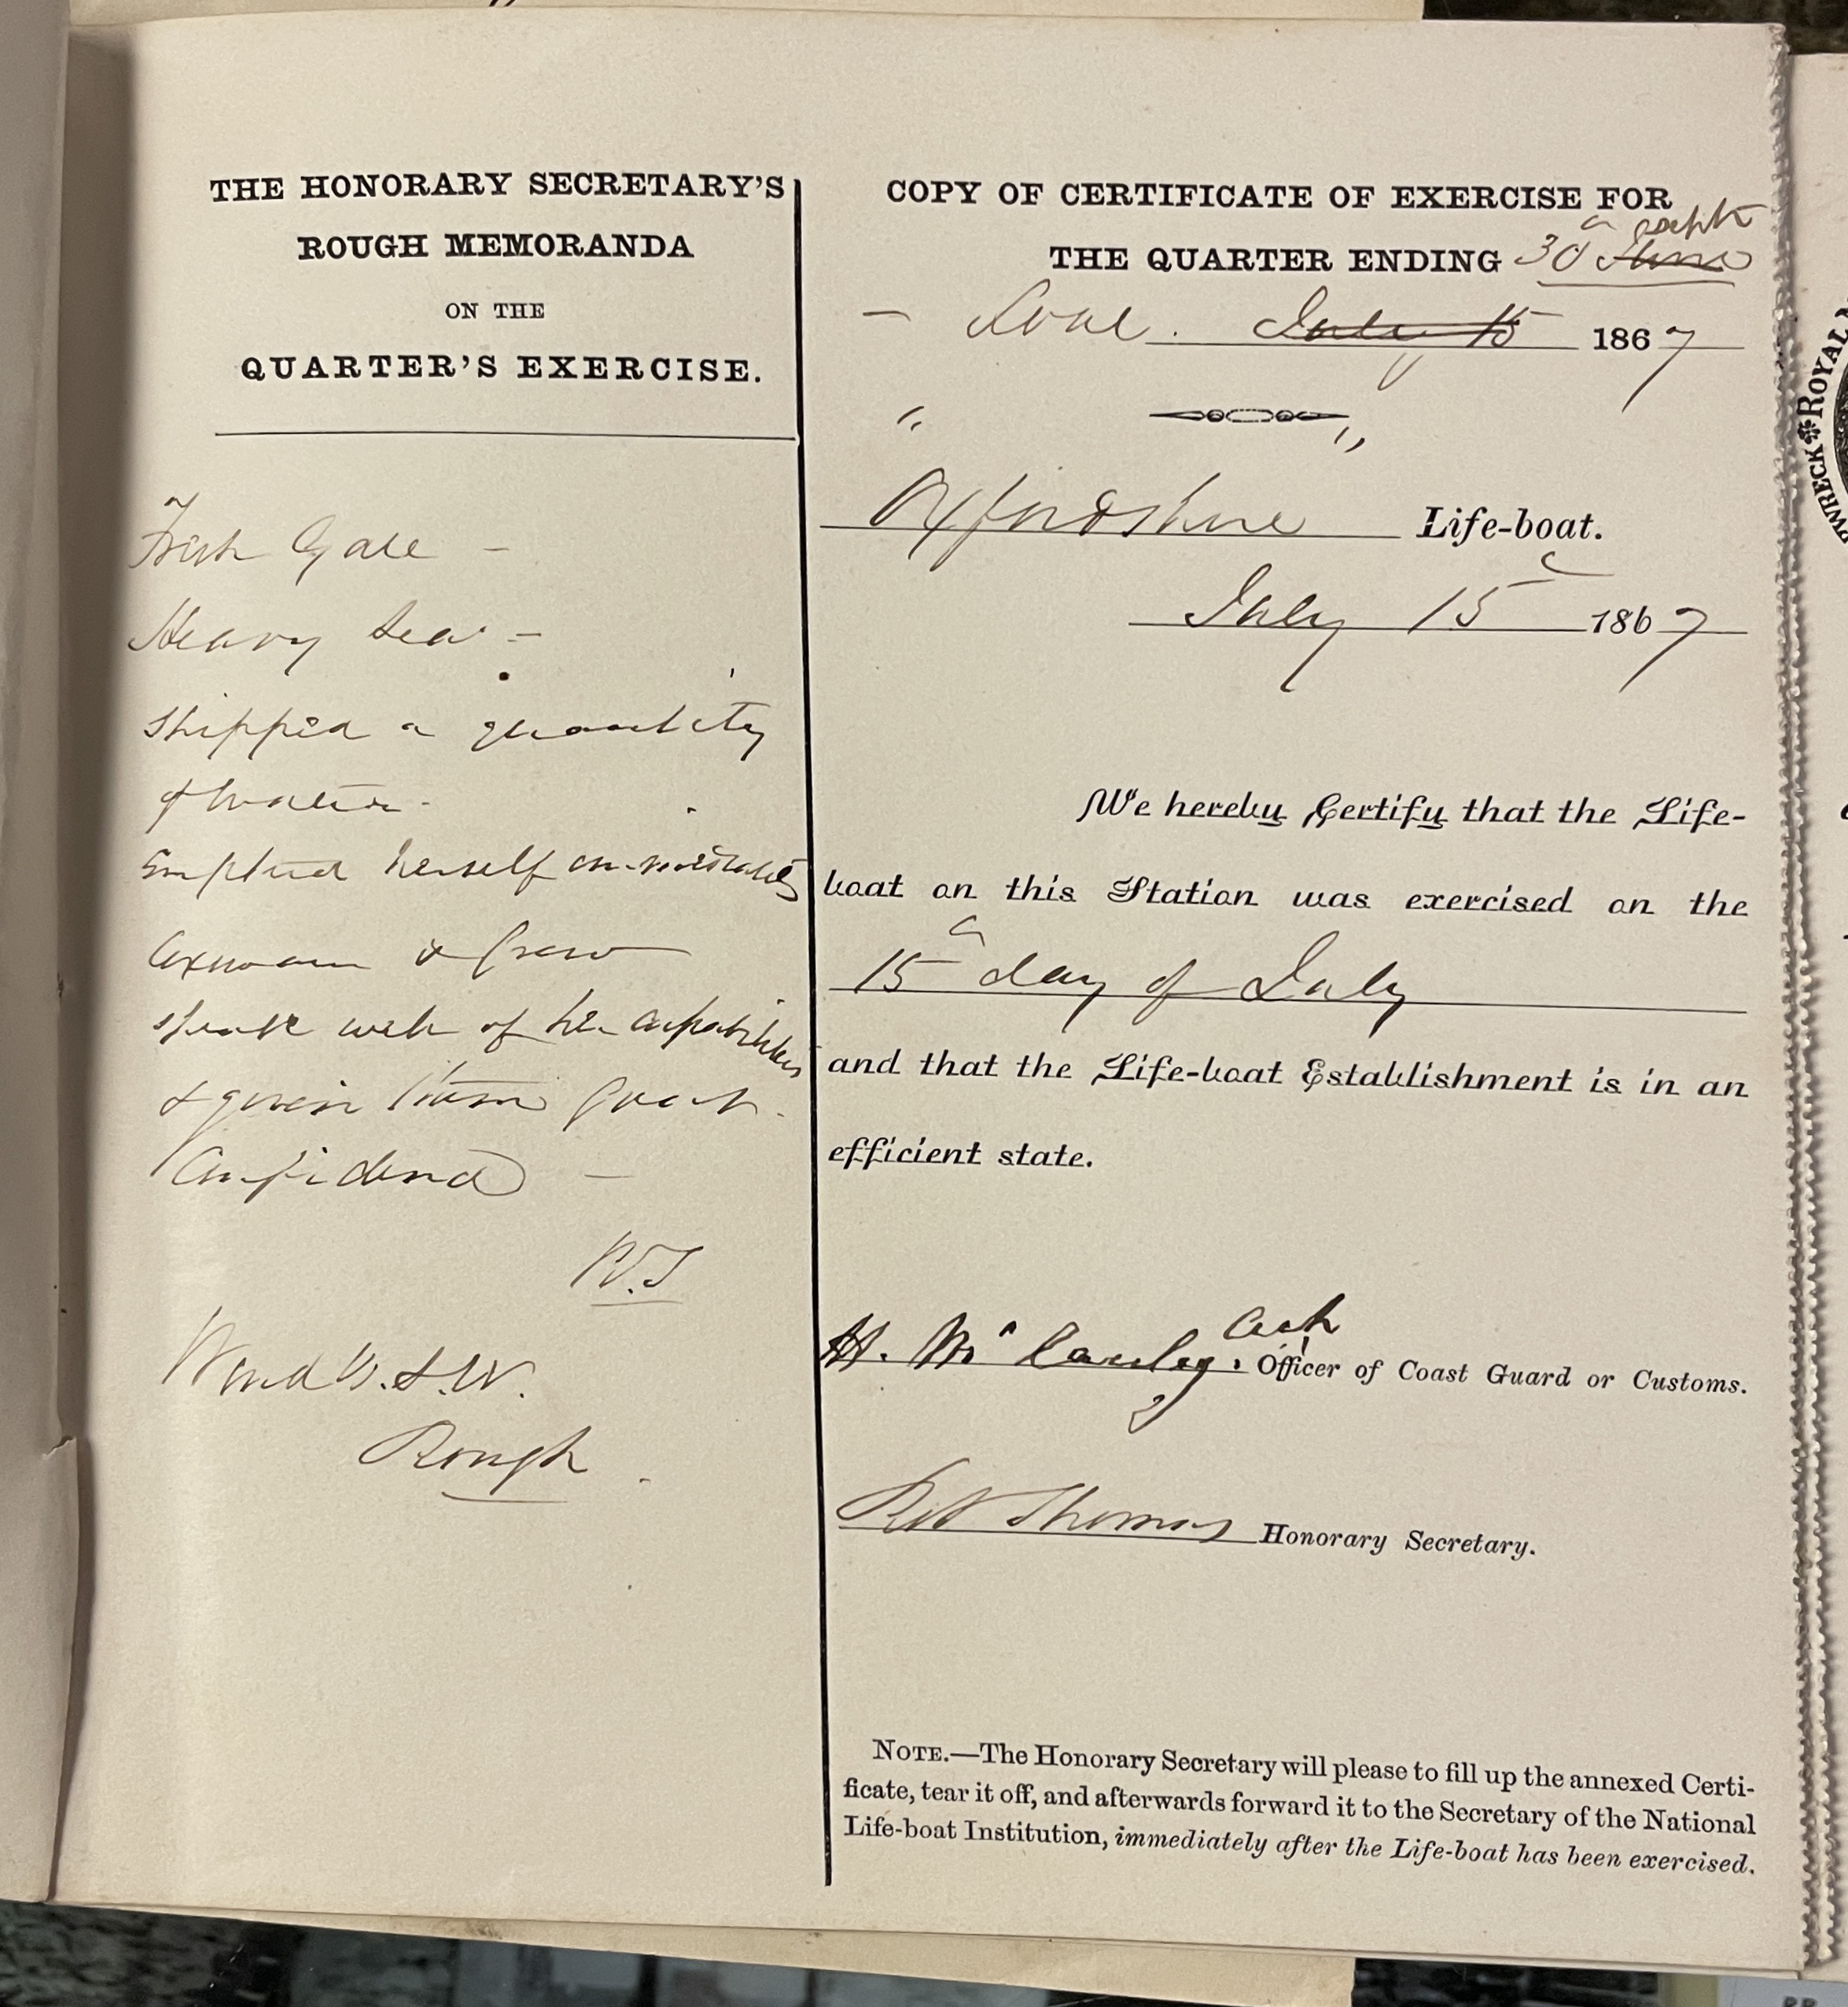 THE HONORARY SECRETARY'S
ROUGH MEMORANDA
ON THE
QUARTER'S EXERCISE.
Fresh Gale –
Heavy Sea –
Shipped a quantity
of water.
Emptied herself immediately
Coxswain & Crew
speak well of her capabilities
& given them great
Confidence –
Wind W.S.W.
Rough.
COPY OF CERTIFICATE OF EXERCISE FOR
THE QUARTER ENDING 30 June Sept
– Looe. July 15 1867
" "
Oxfordshire Life-boat.
July 15th 1867
We hereby Certify that the Life-
boat on this Station was exercised on the
15th day of July
and that the Life-boat Establishment is in an
efficient state.
H. Mc Cauley. Officer of Coast Guard or Customs.
Thomas Honorary Secretary.
NOTE.—The Honorary Secretary will please to fill up the annexed Certi-
ficate, tear it off, and afterwards forward it to the Secretary of the National
Life-boat Institution, immediately after the Life-boat has been exercised.
PWRECK ROYAL